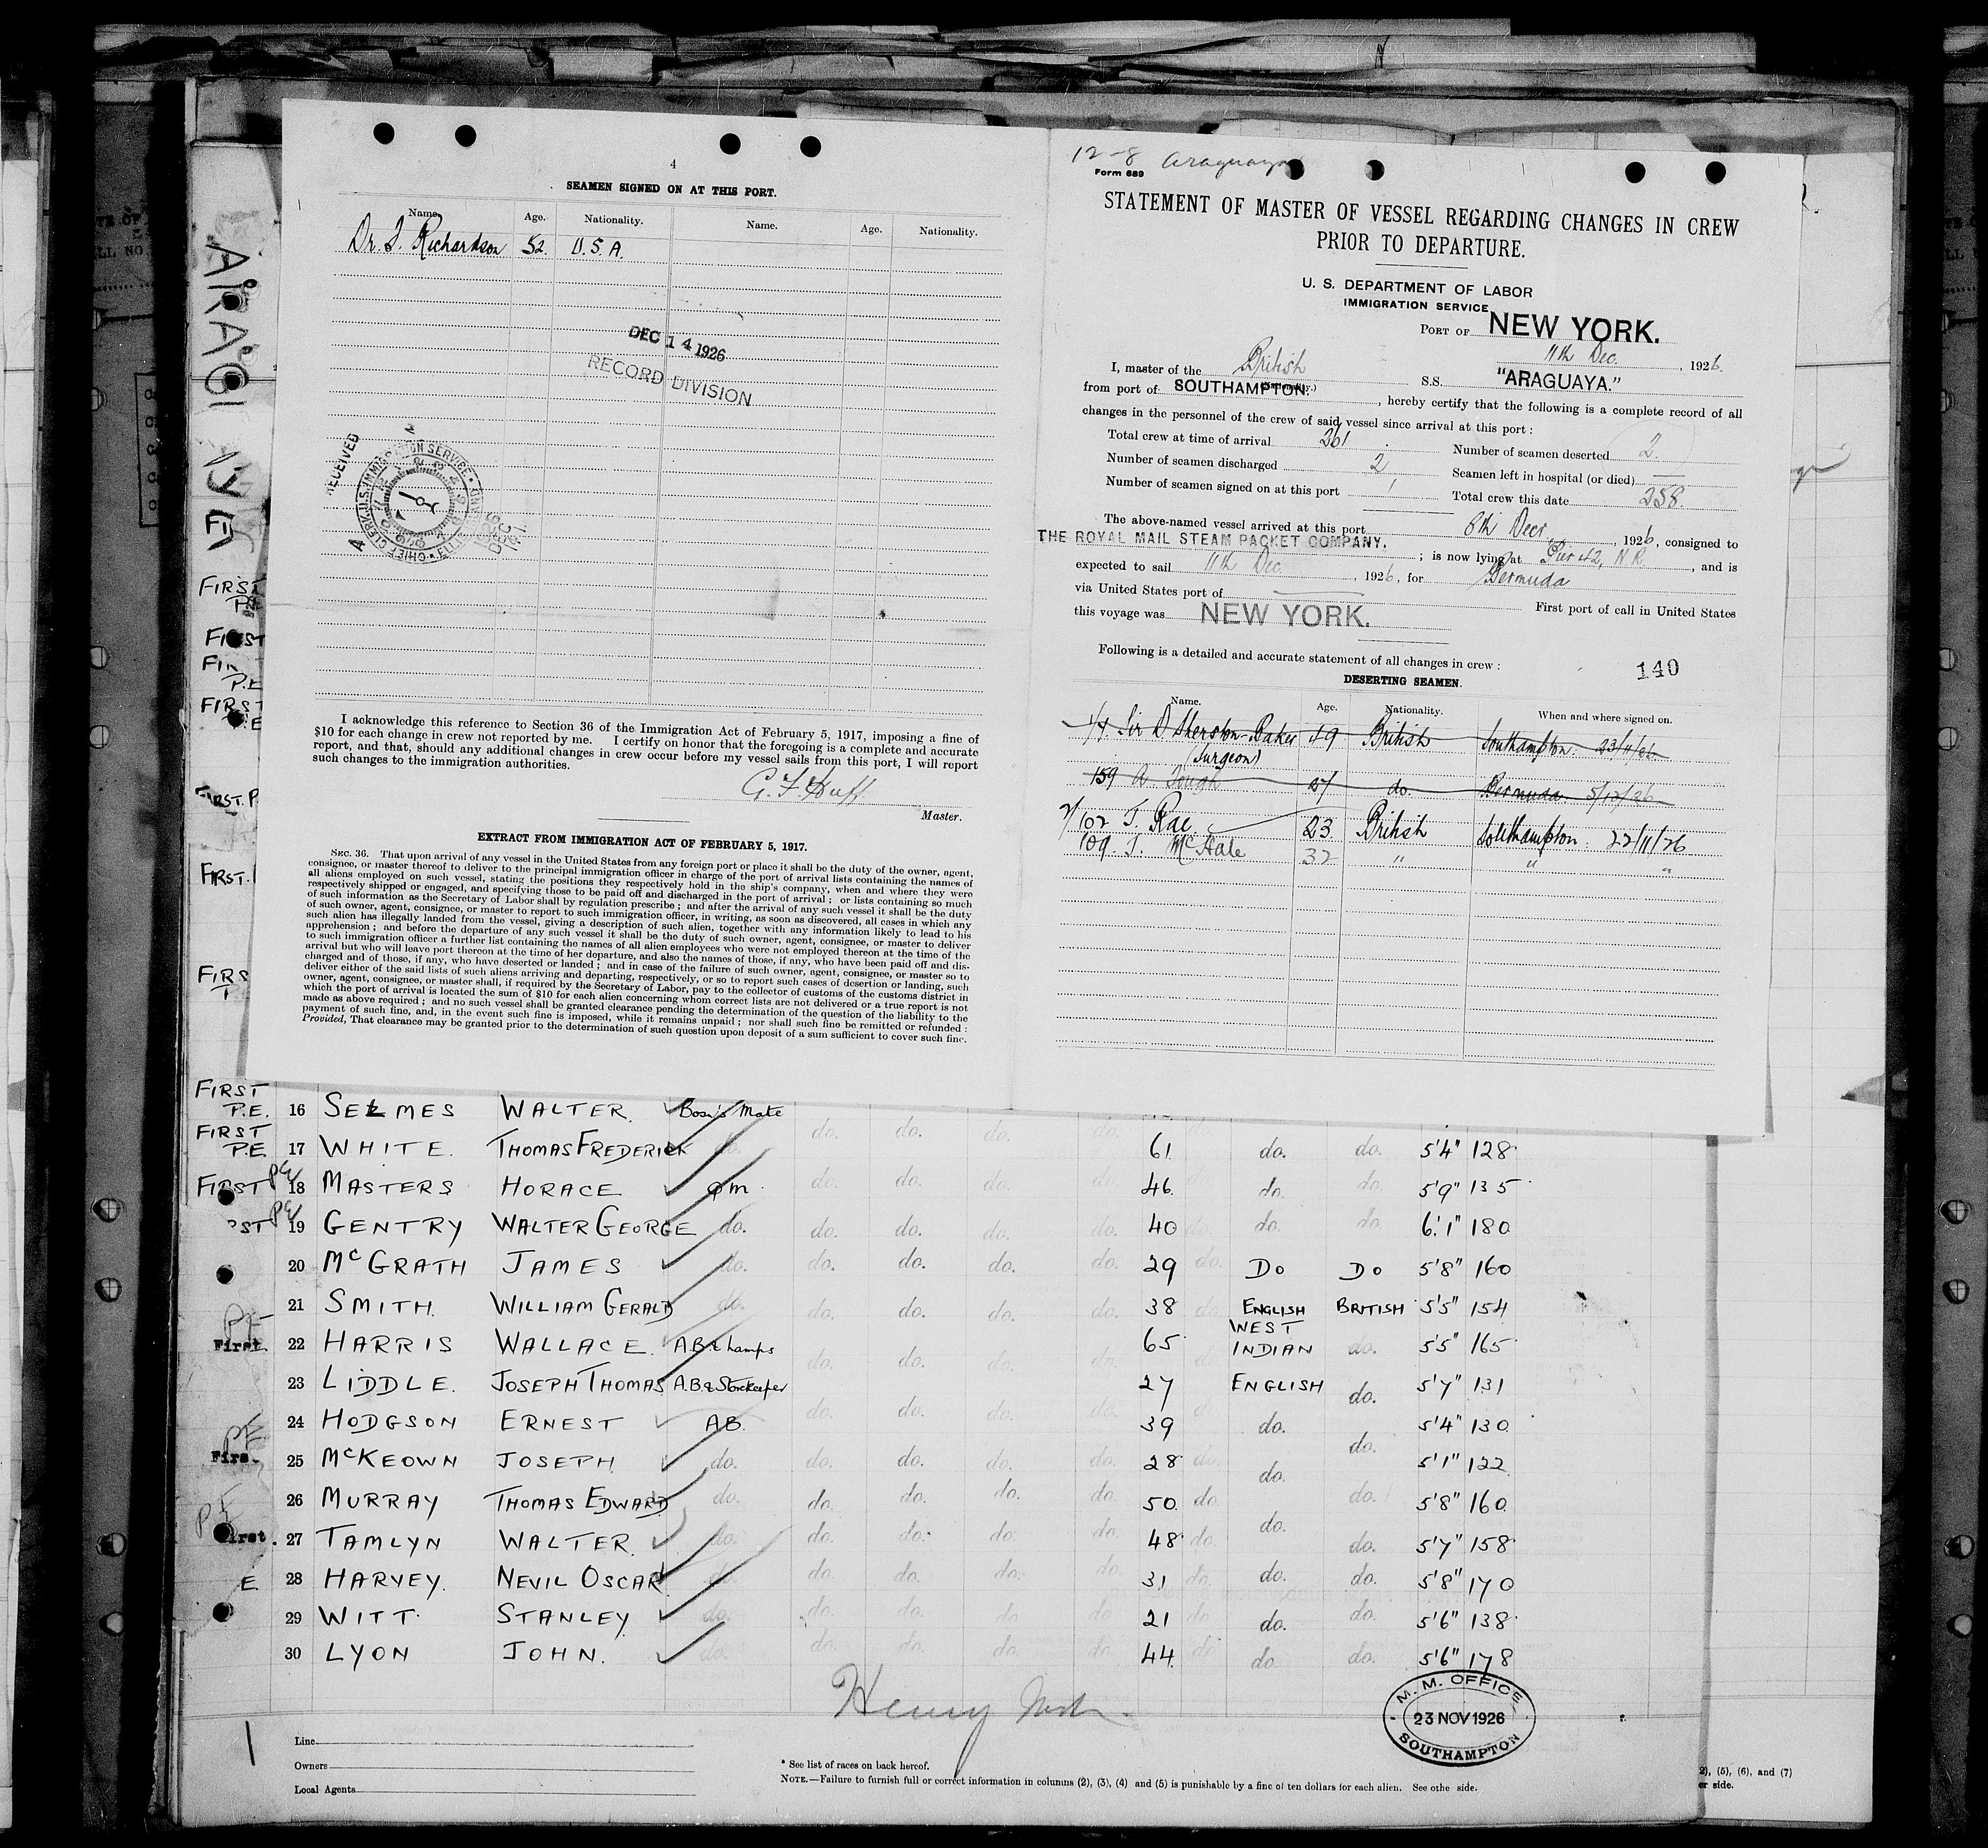 4
SEAMEN SIGNED ON AT THIS PORT.
Name. Age. Nationality. Name. Age. Nationality.
Dr. I. Richardson 52. U.S.A.
DEC 14 1926
RECORD DIVISION
RECEIVED
CHIEF CLERK, U.S. IMMIGRATION SERVICE
I acknowledge this reference to Section 36 of the Immigration Act of February 5, 1917, imposing a fine of
$10 for each change in crew not reported by me. I certify on honor that the foregoing is a complete and accurate
report, and that, should any additional changes in crew occur before my vessel sails from this port, I will report
such changes to the immigration authorities.
G. F. Huff
Master.
EXTRACT FROM IMMIGRATION ACT OF FEBRUARY 5, 1917.
SEC. 36. That upon arrival of any vessel in the United States from any foreign port or place it shall be the duty of the owner, agent,
consignee, or master thereof to deliver to the principal immigration officer in charge of the port of arrival lists containing the names of
all aliens employed on such vessel, stating the positions they respectively hold in the ship's company, when and where they were
respectively shipped or engaged, and specifying those to be paid off and discharged in the port of arrival ; or lists containing so much
of such information as the Secretary of Labor shall by regulation prescribe ; and after the arrival of any such vessel it shall be the duty
of such owner, agent, consignee, or master to report to such immigration officer, in writing, as soon as discovered, all cases in which any
such alien has illegally landed from the vessel, giving a description of such alien, together with any information likely to lead to his
apprehension ; and before the departure of any such vessel it shall be the duty of such owner, agent, consignee, or master to deliver
to such immigration officer a further list containing the names of all alien employees who were not employed thereon at the time of the
arrival but who will leave port thereon at the time of her departure, and also the names of those, if any, who have been paid off and dis-
charged and of those, if any, who have deserted or landed ; and in case of the failure of such owner, agent, consignee, or master so to
deliver either of the said lists of such aliens arriving and departing, respectively, or so to report such cases of desertion or landing, such
owner, agent, consignee, or master shall, if required by the Secretary of Labor, pay to the collector of customs of the customs district in
which the port of arrival is located the sum of $10 for each alien concerning whom correct lists are not delivered or a true report is not
made as above required ; and no such vessel shall be granted clearance pending the determination of the question of the liability to the
payment of such fine, and, in the event such fine is imposed, while it remains unpaid ; nor shall such fine be remitted or refunded :
Provided, That clearance may be granted prior to the determination of such question upon deposit of a sum sufficient to cover such fine.
12-8 Araguaya
Form 689
STATEMENT OF MASTER OF VESSEL REGARDING CHANGES IN CREW
PRIOR TO DEPARTURE.
U. S. DEPARTMENT OF LABOR
IMMIGRATION SERVICE
PORT OF NEW YORK.
11th Dec. , 1926.
I, master of the British S.S. "ARAGUAYA."
from port of SOUTHAMPTON. , hereby certify that the following is a complete record of all
changes in the personnel of the crew of said vessel since arrival at this port :
Total crew at time of arrival 261 Number of seamen deserted 2.
Number of seamen discharged 2 Seamen left in hospital (or died) —
Number of seamen signed on at this port 1 Total crew this date 258.
The above-named vessel arrived at this port 8th Decr , 1926, consigned to
THE ROYAL MAIL STEAM PACKET COMPANY. ; is now lying at Pier 42, N.R. , and is
expected to sail 11th Dec , 1926, for Bermuda
via United States port of —
First port of call in United States
this voyage was NEW YORK.
Following is a detailed and accurate statement of all changes in crew :
140
DESERTING SEAMEN.
Name. Age. Nationality. When and where signed on.
Sir D Sherston-Baker 49 British Southampton. 23/11/26
(Surgeon)
159 A. Tough 27 do. Bermuda 5/12/26
102 T. Rae 23 British Southampton. 22/11/26
109. T. McHale 32 " " "
ARAGUAYA
FIRST P.E. 16 SELMES WALTER. Bosn's Mate
FIRST P.E. 17 WHITE. THOMAS FREDERICK do. do. do. do. do. 61 do. do. do. 5'4" 128
FIRST PE 18 MASTERS HORACE QM. do. do. do. do. 46 do. do. do. 5'9" 135
PE 19 GENTRY WALTER GEORGE do. do. do. do. do. 40 do. do. do. 6'.1" 180
20 McGRATH JAMES do. do. do. do. do. 29 do. Do Do 5'8" 160
21 SMITH. WILLIAM GERALD do. do. do. do. do. 38 do. ENGLISH BRITISH 5'5" 154
First. PE 22 HARRIS WALLACE. A.B.& Lamps do. do. do. do. 65 WEST INDIAN do. 5'5" 165
23 LIDDLE. JOSEPH THOMAS A.B.& Storekeeper 27 ENGLISH do. 5'7" 131
24 HODGSON ERNEST A.B. do. do. do. do. 39 do. do. 5'4" 130
PE 25 McKEOWN JOSEPH. do. do. do. do. do. 28 do. do. do. 5'1" 122
26 MURRAY THOMAS EDWARD do. do. do. do. do. 50. do. do. do. 5'8" 160
PE 27 TAMLYN WALTER. do. do. do. do. do. 48 do. do. 5'7" 158
E. 28 HARVEY. NEVIL OSCAR do. do. do. do. do. 31 do. do. do. 5'8" 170
29 WITT. STANLEY do. do. do. do. do. 21 do. do. do. 5'6" 138
30 LYON JOHN. do. do. do. do. do. 44 do. do. do. 5'6" 178
Henry
M. M. OFFICE
23 NOV 1926
SOUTHAMPTON
Line
Owners
Local Agents
* See list of races on back hereof.
NOTE.—Failure to furnish full or correct information in columns (2), (3), (4) and (5) is punishable by a fine of ten dollars for each alien. See othe side.
2), (5), (6), and (7)
er side.